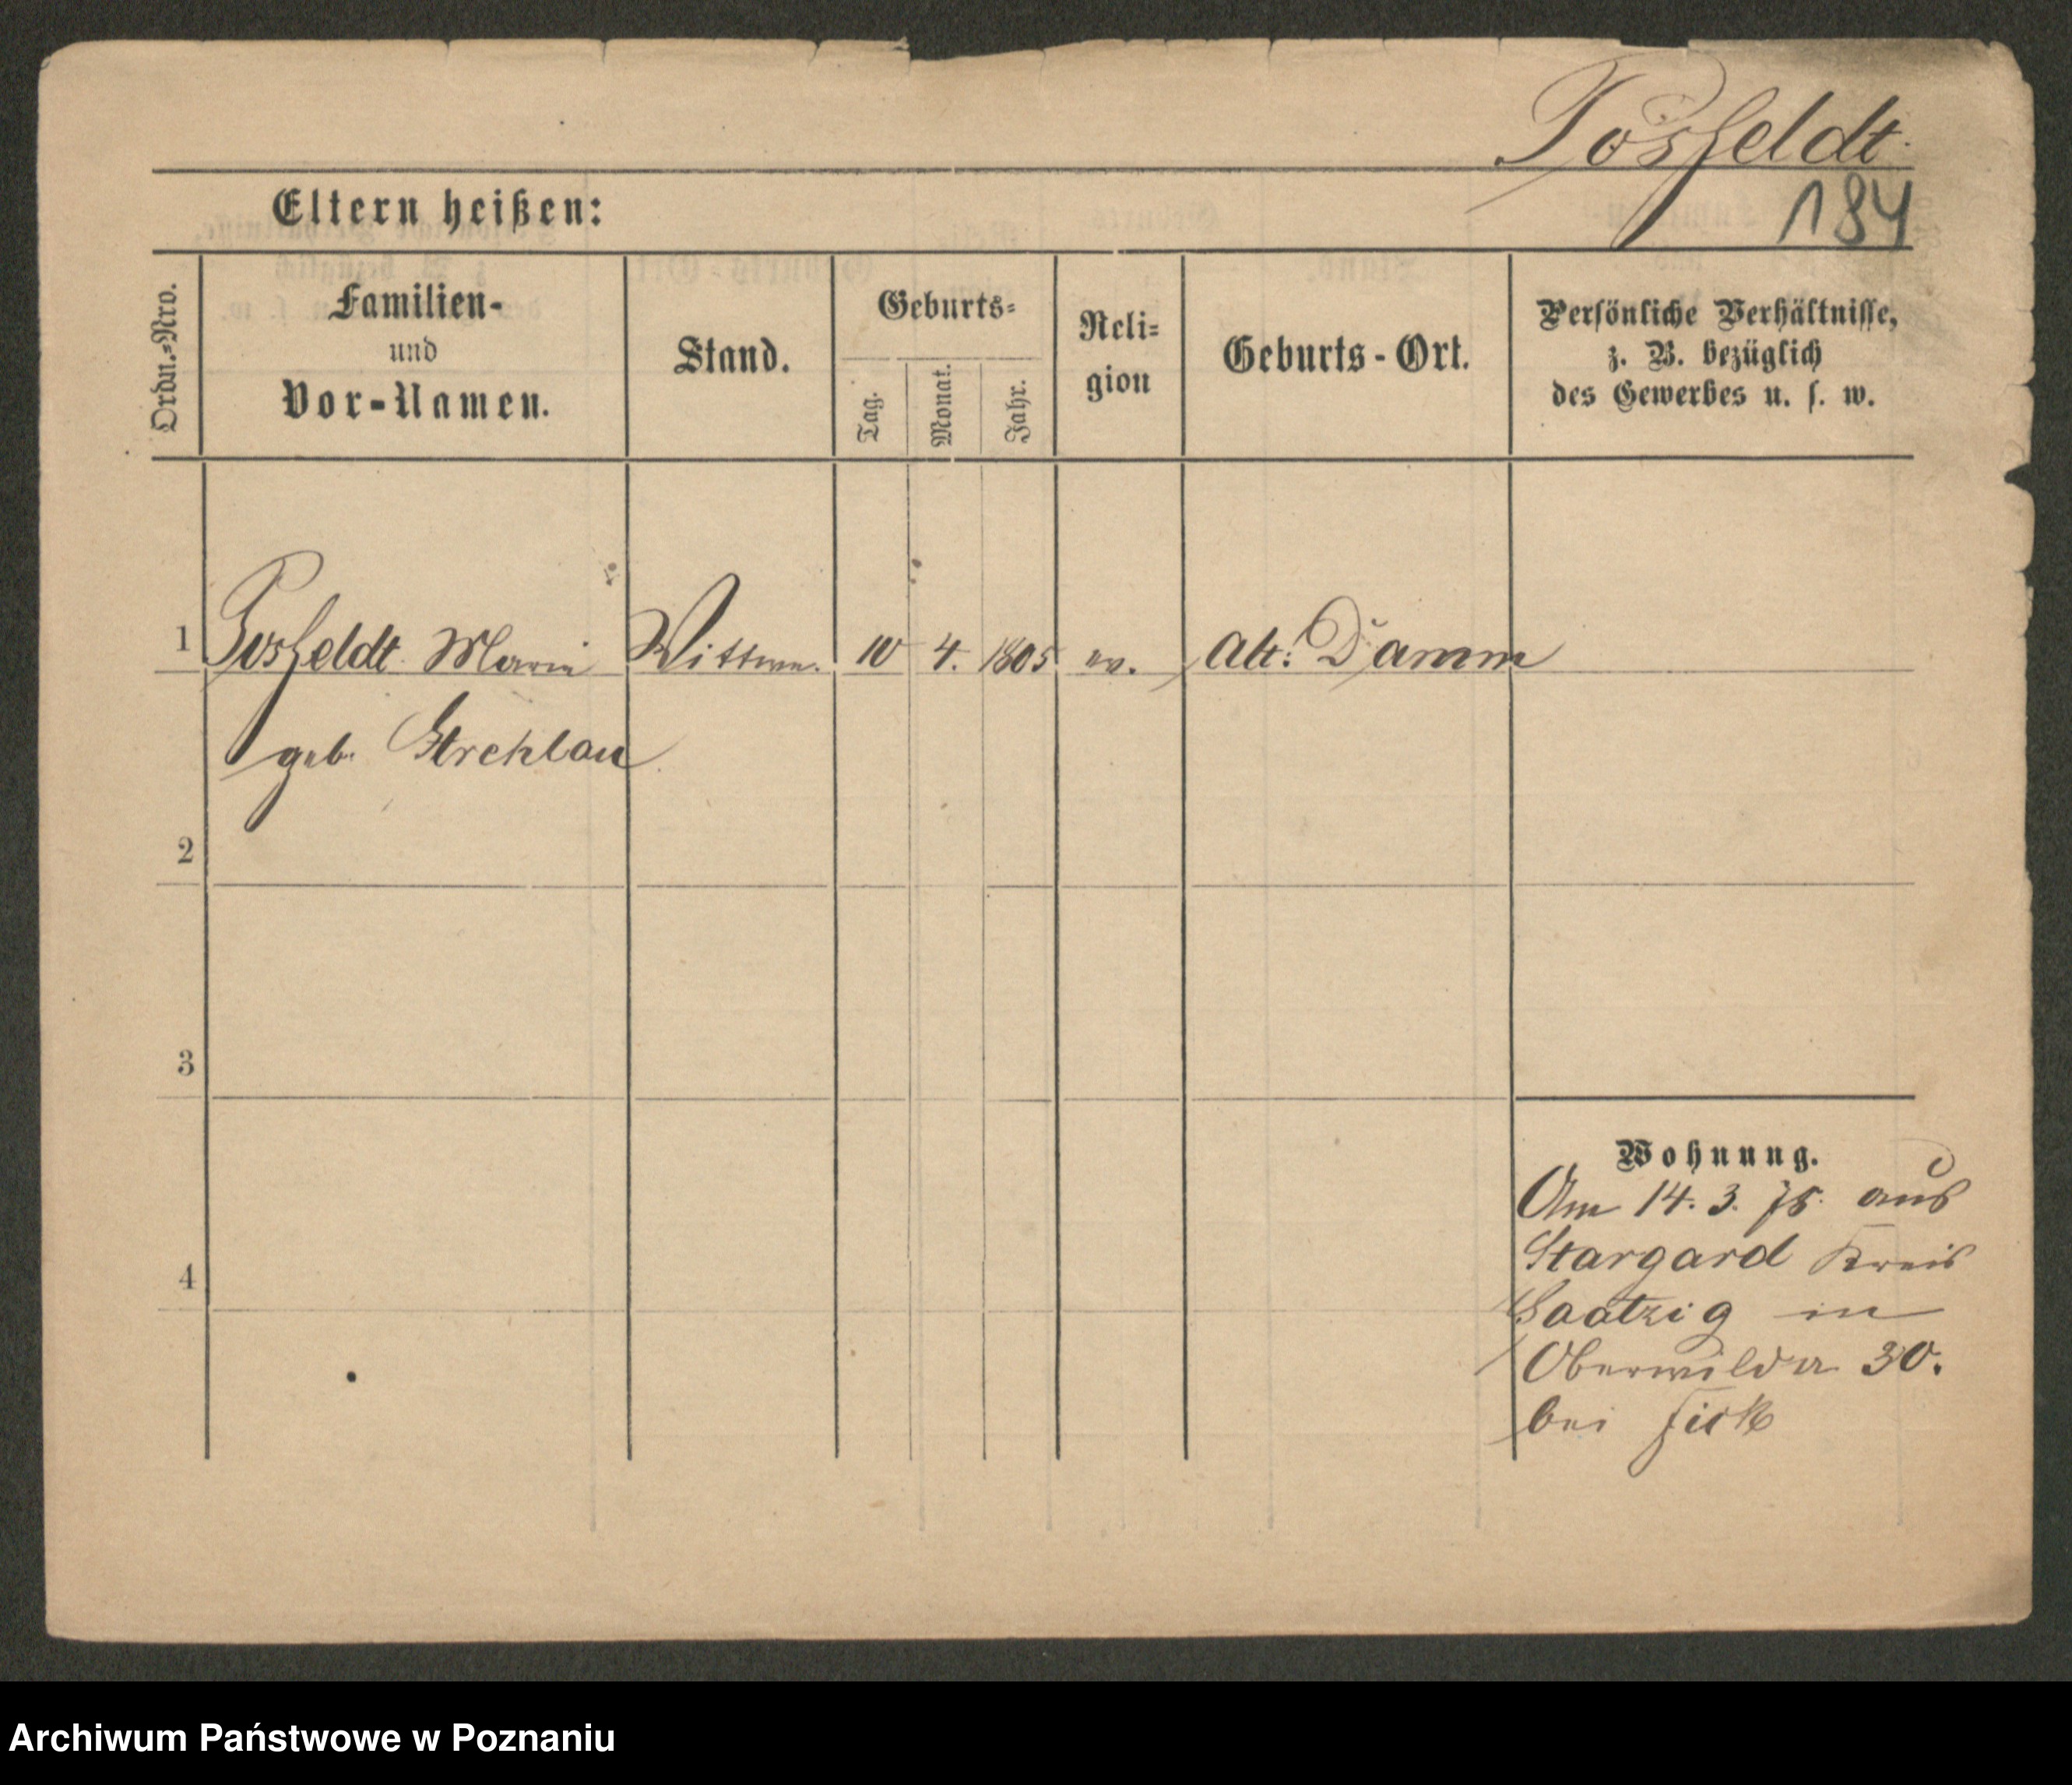 Posfeldt.
184
Eltern heißen:
Ordn.-Nro.
Familien-
und
Vor-Namen.
Stand.
Geburts-
Tag.
Monat.
Jahr.
Reli-
gion
Geburts-Ort.
Persönliche Verhältnisse,
z. B. bezüglich
des Gewerbes u. s. w.
1 Posfeldt Marie Wittwe. 10 4. 1805 ev. Alt: Damm
geb. Strehlau
2
3
4
Wohnung.
Am 14. 3. 75. aus
Stargard Kreis
Saatzig in
Oberwilda 30.
bei
Archiwum Państwowe w Poznaniu